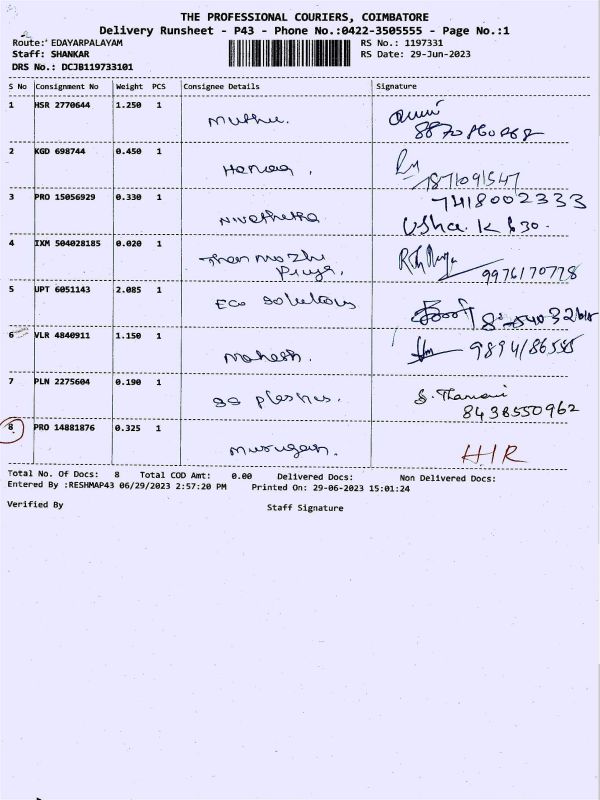 THE PROFESSIONAL COURIERS, COIMBATORE
Delivery Runsheet - P43 - Phone No.:0422-3505555 - Page No.:1
Route: EDAYARPALAYAM RS No.: 1197331
Staff: SHANKAR RS Date: 29-Jun-2023
DRS No.: DCJB119733101
S No Consignment No Weight PCS Consignee Details Signature
1 HSR 2770644 1.250 1
Muthu.
2 KGD 698744 0.450 1
3 PRO 15056929 0.330 1 7418002333
Nivethetha Usha. K
4 IXM 504028185 0.020 1
Priya. 9976170778
5 UPT 6051143 2.085 1
Eco solutions
6 VLR 4840911 1.150 1
Mahesh.
7 PLN 2275604 0.190 1
8438550962
8 PRO 14881876 0.325 1
Murugan. HIR
Total No. Of Docs: 8 Total COD Amt: 0.00 Delivered Docs: Non Delivered Docs:
Entered By :RESHMAP43 06/29/2023 2:57:20 PM Printed On: 29-06-2023 15:01:24
Verified By Staff Signature